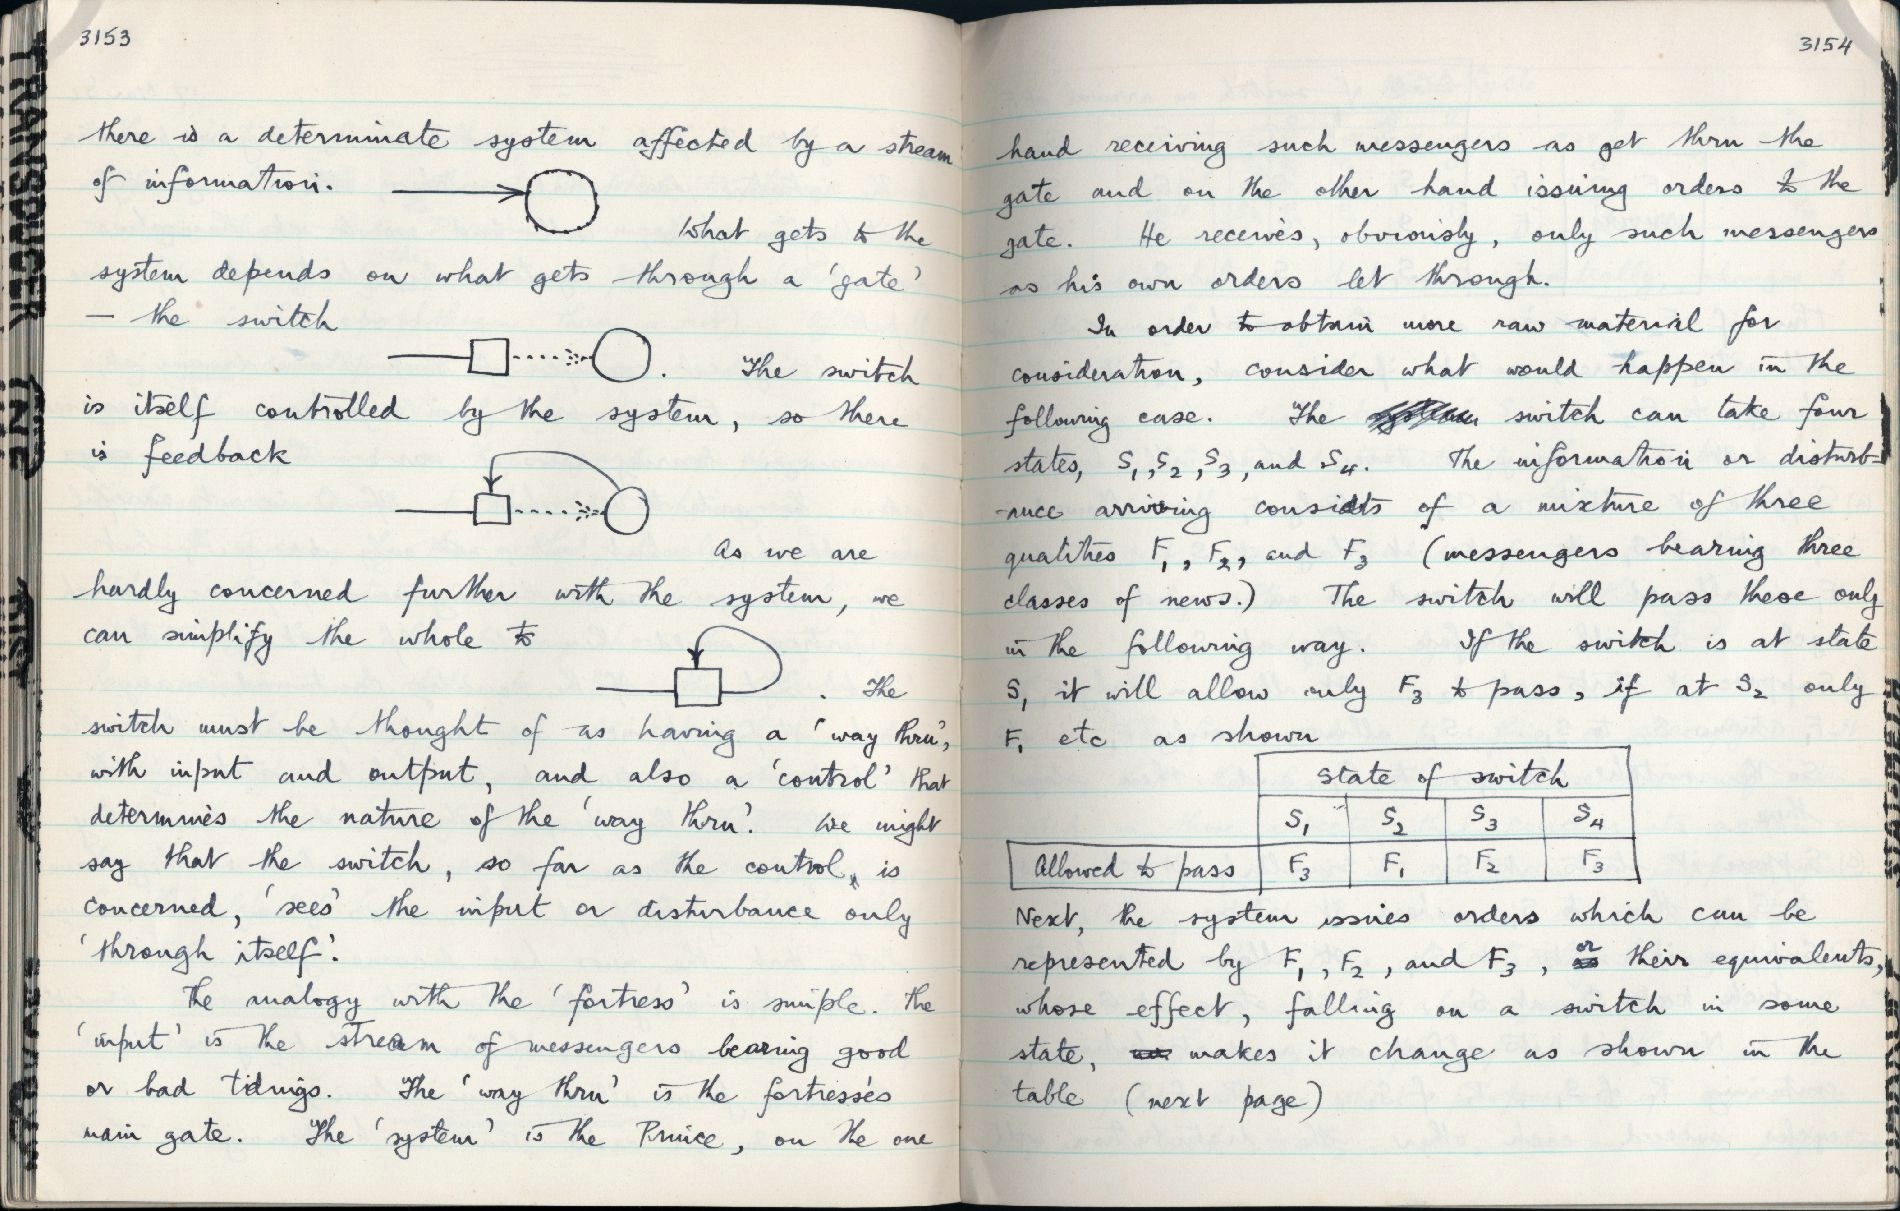 3153
there is a determinate system affected by a stream
of information.
What gets to the
system depends on what gets through a 'gate'
— the switch
. The switch
is itself controlled by the system, so there
is feedback
As we are
hardly concerned further with the system, we
can simplify the whole to
. The
switch must be thought of as having a 'way thru',
with input and output, and also a 'control' that
determines the nature of the 'way thru'. We might
say that the switch, so far as the control, is
concerned, 'sees' the input or disturbance only
'through itself'.
The analogy with the 'fortress' is simple. The
'input' is the stream of messengers bearing good
or bad tidings. The 'way thru' is the fortress's
main gate. The 'system' is the Prince, on the one
3154
hand receiving such messengers as get thru the
gate and on the other hand issuing orders to the
gate. He receives, obviously, only such messengers
as his own orders let through.
In order to obtain more raw material for
consideration, consider what would happen in the
following case. The switch can take four
states, S1, S2, S3, and S4. The information or disturb-
-ance arriving consists of a mixture of three
qualities F1, F2, and F3 (messengers bearing three
classes of news.) The switch will pass these only
in the following way. If the switch is at state
S1 it will allow only F3 to pass, if at S2 only
F1 etc as shown
State of switch
S1 S2 S3 S4
Allowed to pass F3 F1 F2 F3
Next, the system issues orders which can be
represented by F1, F2, and F3, or their equivalents,
whose effect, falling on a switch in some
state, makes it change as shown in the
table (next page)